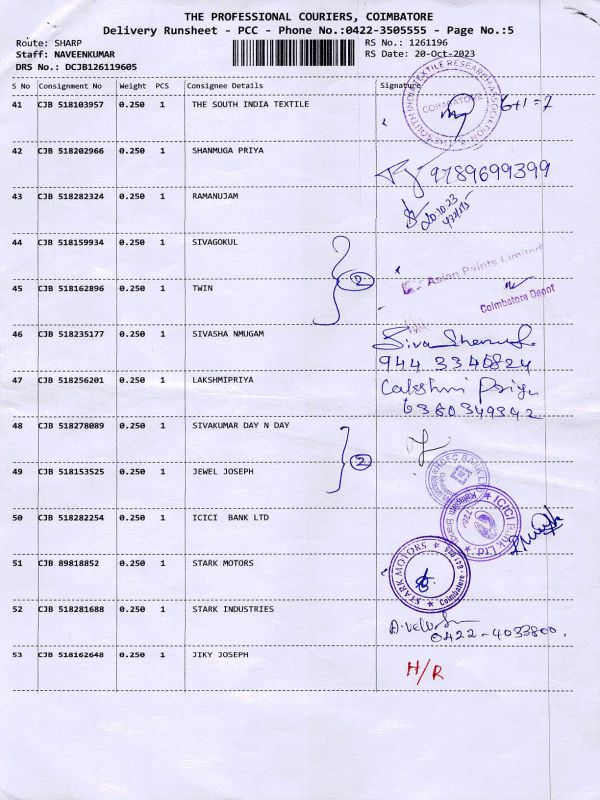 THE PROFESSIONAL COURIERS, COIMBATORE
Delivery Runsheet - PCC - Phone No.:0422-3505555 - Page No.:5
Route: SHARP
RS No.: 1261196
Staff: NAVEENKUMAR
RS Date: 20-Oct-2023
DRS No.: DCJB126119605
S No Consignment No Weight PCS Consignee Details Signature
41 CJB 518103957 0.250 1 THE SOUTH INDIA TEXTILE
THE SOUTH INDIA TEXTILE RESEARCH ASSOCIATION
COIMBATORE
6+1=7
42 CJB 518202966 0.250 1 SHANMUGA PRIYA
9789699399
43 CJB 518282324 0.250 1 RAMANUJAM
20.10.23
44 CJB 518159934 0.250 1 SIVAGOKUL
2
Asian Paints Limited
Coimbatore Depot
45 CJB 518162896 0.250 1 TWIN
46 CJB 518235177 0.250 1 SIVASHA NMUGAM
944 3346824
47 CJB 518256201 0.250 1 LAKSHMIPRIYA
Lakshmi Priya
6380349342
48 CJB 518278089 0.250 1 SIVAKUMAR DAY N DAY
2
49 CJB 518153525 0.250 1 JEWEL JOSEPH
HDFC BANK LTD
50 CJB 518282254 0.250 1 ICICI BANK LTD
ICICI Bank Ltd.
51 CJB 89818852 1 0.250 1 STARK MOTORS
STARK MOTORS
Coimbatore
52 CJB 518281688 0.250 1 STARK INDUSTRIES
0422-4033800.
53 CJB 518162648 0.250 1 JIKY JOSEPH
H/R